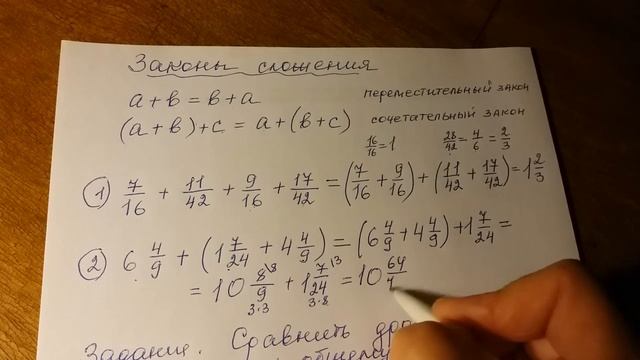 Законы сложения
a + b = b + a переместительный закон
(a + b) + c = a + (b + c) сочетательный закон
16/16 = 1 28/42 = 4/6 = 2/3
1) 7/16 + 11/42 + 9/16 + 17/42 = (7/16 + 9/16) + (11/42 + 17/42) = 1 2/3
2) 6 4/9 + (1 7/24 + 4 4/9) = (6 4/9 + 4 4/9) + 1 7/24 =
= 10 8\8/9 + 1 7\3/24 = 10 64/
3·3 3·8
Задание. Сравнить